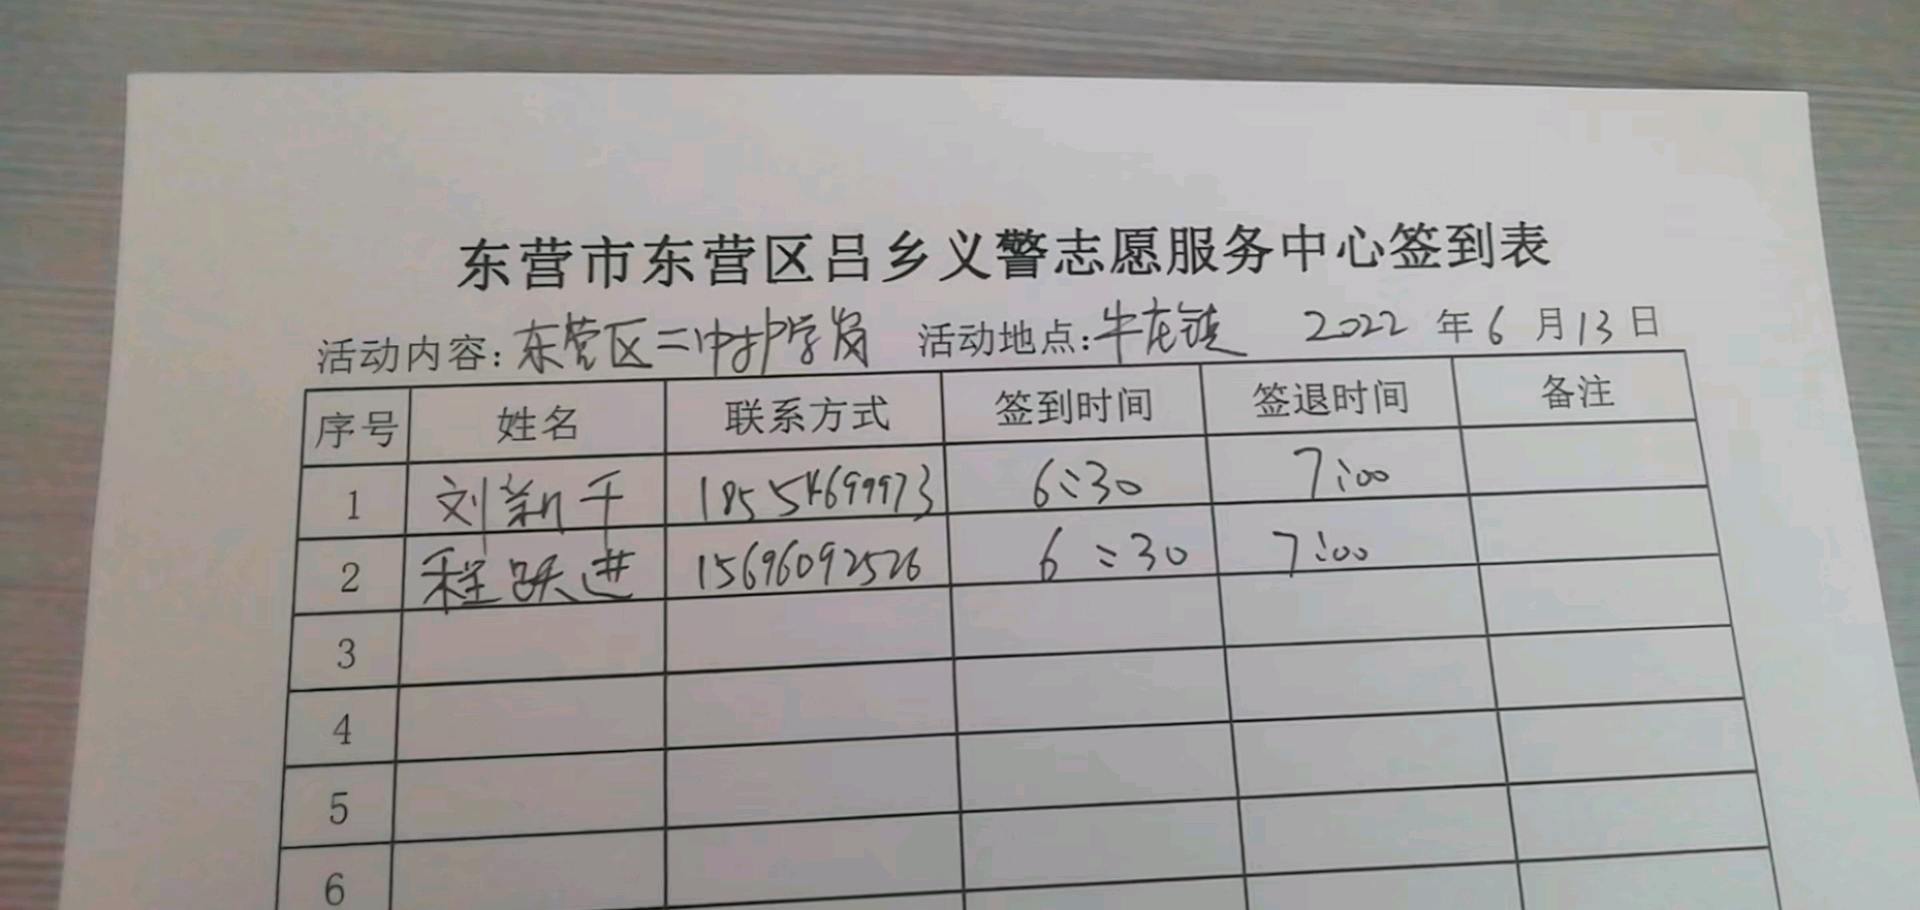 东营市东营区吕乡义警志愿服务中心签到表
活动内容:东营区二中护学岗 活动地点:牛庄镇 2022年6月13日
序号 姓名 联系方式 签到时间 签退时间 备注
1 刘新千 18554699973 6:30 7:00
2 程跃进 15696092526 6:30 7:00
3
4
5
6